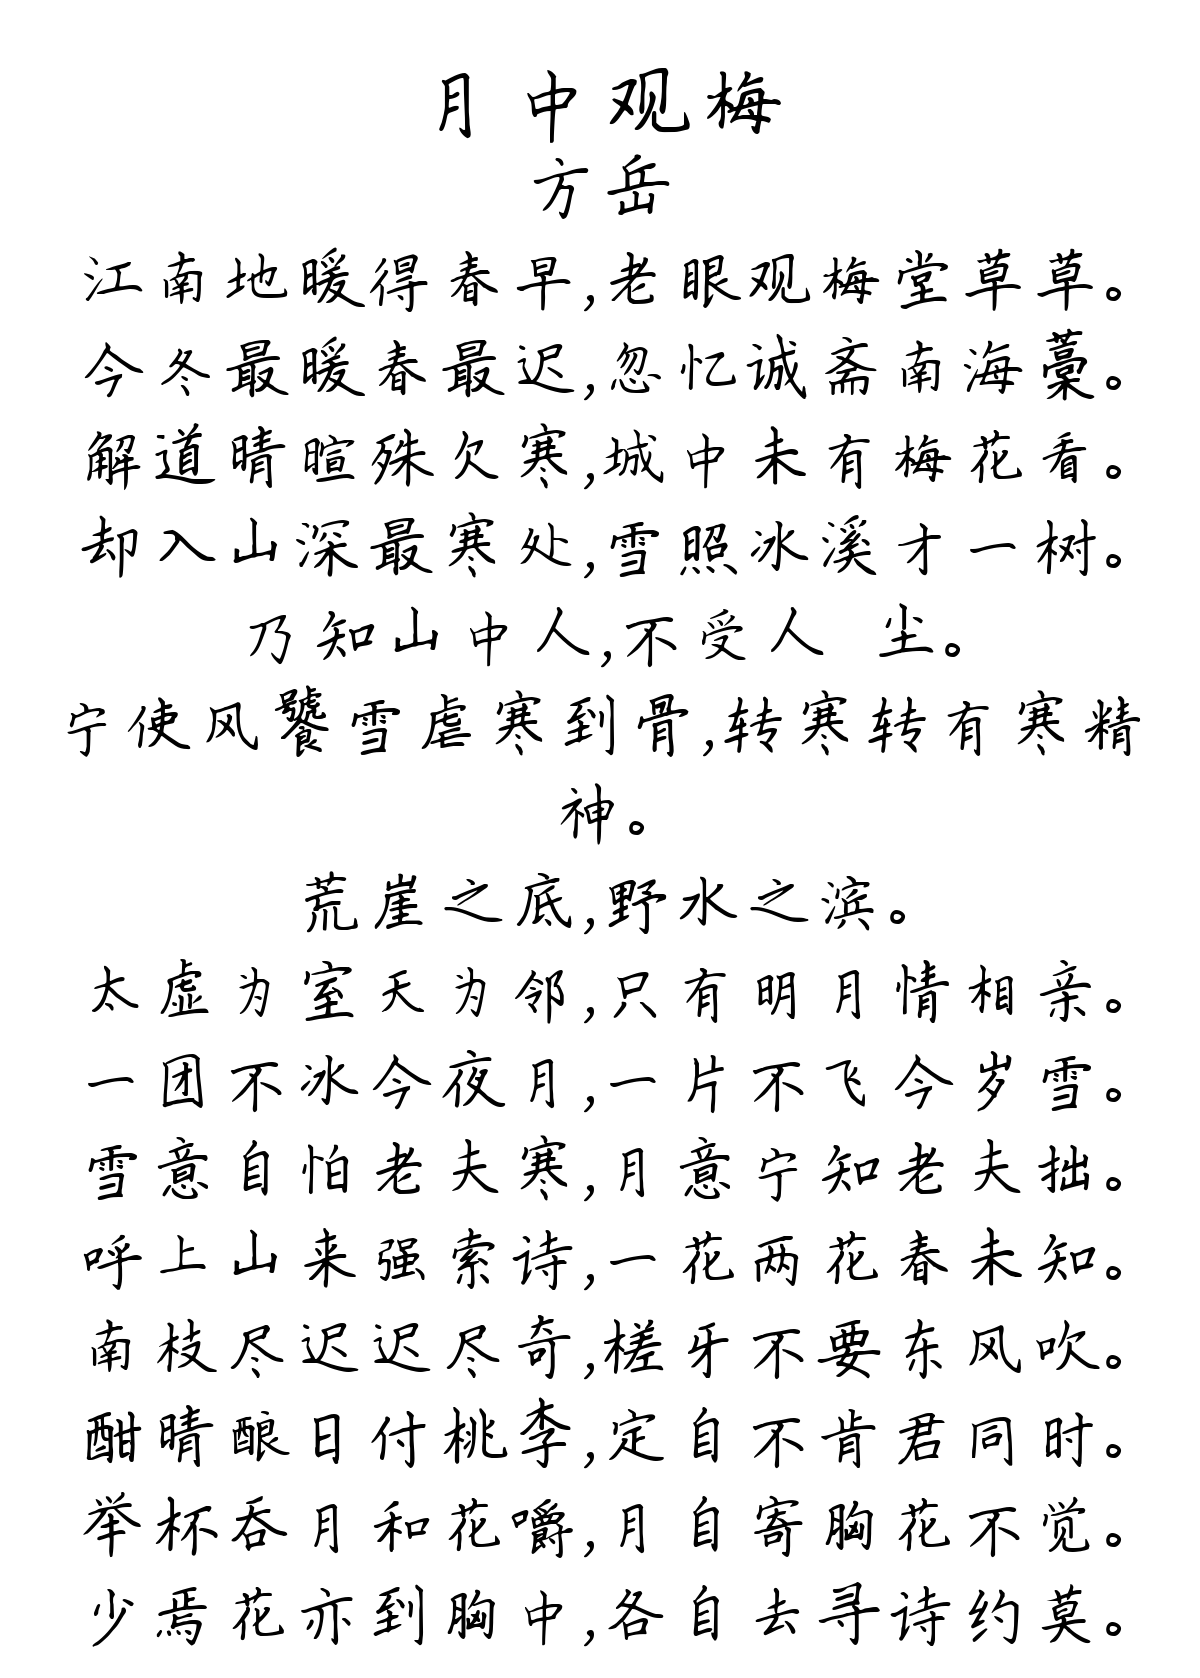 月中观梅
方岳
江南地暖得春早,老眼观梅堂草草。
今冬最暖春最迟,忽忆诚斋南海藁。
解道晴暄殊欠寒,城中未有梅花看。
却入山深最寒处,雪照冰溪才一树。
乃知山中人,不受人 尘。
宁使风饕雪虐寒到骨,转寒转有寒精
神。
荒崖之底,野水之滨。
太虚为室天为邻,只有明月情相亲。
一团不冰今夜月,一片不飞今岁雪。
雪意自怕老夫寒,月意宁知老夫拙。
呼上山来强索诗,一花两花春未知。
南枝尽迟迟尽奇,槎牙不要东风吹。
酣晴酿日付桃李,定自不肯君同时。
举杯吞月和花嚼,月自寄胸花不觉。
少焉花亦到胸中,各自去寻诗约莫。